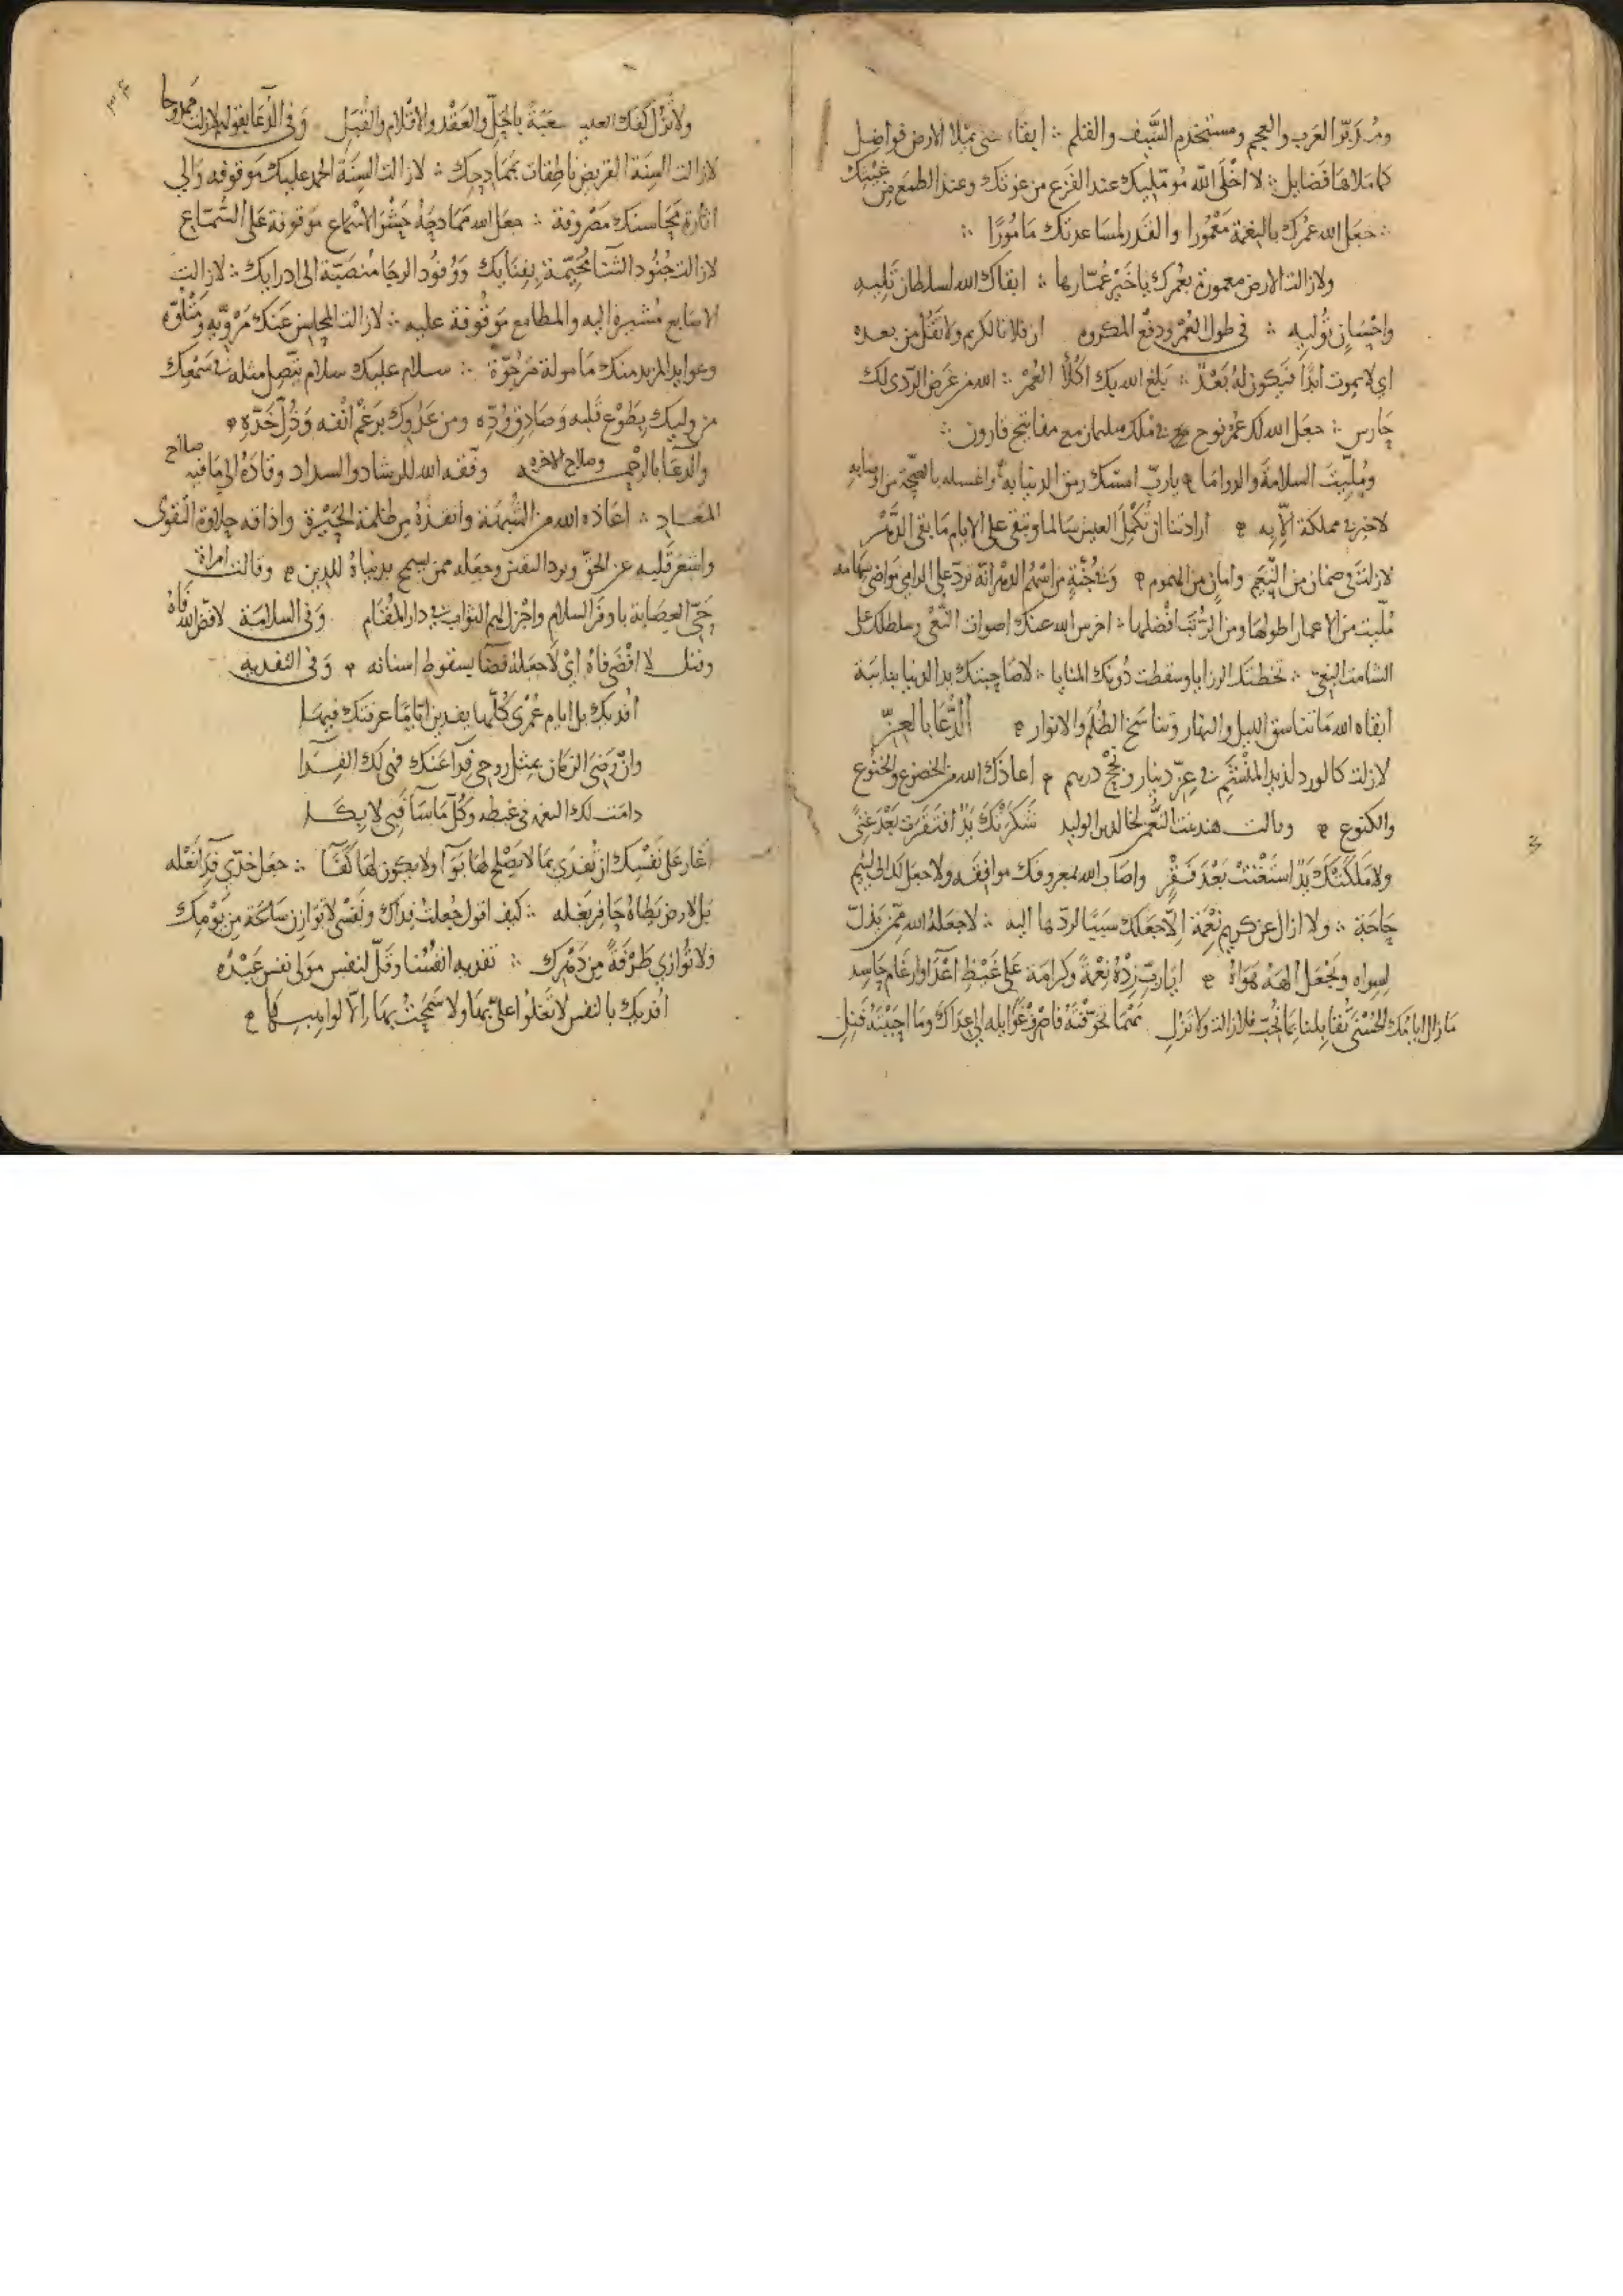 ومُدَبّر العَرَب والعجم ومستخدم السَّيف والقلم ؞ ابقاء حتى يملا الارض فواضل
كما ملاها فضايل ؞ لا اخلَى اللّه مُومّليك عند الفزع من عونك وعند الطمع من غيثك
؞ جعل الله عمرك بالنعمة مَعْمُورا والقدر لمساعدتك مَامُورًا ؞
ولا زالت الارض معمورة بعُمرك يا خَيْر عُمّارها ؞ ابقاك الله لسلطان تليه
واحْسَانٍ تُوليه ؞ في طول العُمْر ودفْع المكروه ان فلانا لكريم ولا تقُل من بعده
اي لا يموت ابدًا فيكون لهُ بَعْدٌ ؞ بلغ الله بك اكْلأ العُمْر ؞ الله من غرض الرّدى لك
حَارس ؞ جعل الله لك عُمْر نوح في ملك سليمان مع مفاتيح قارون ؞
ومُلّيتَ السلامةَ والدواما يا ربّ امسك رمق الدنيا به واغسله بالصحّة من اوصابه
لا خير في مملكة الّا به ارادتنا ان تكمل العيش سالما وتبقى على الايام ما بقى الدّهْر
لا زلت في ضمان من النّعيم وامان من الهموم وفي جُنّةٍ من اسْهُم الدهر انّه تردّ على الرامى مواضى سهامه
مُلّيت من الاعمار اطولها ومن الرّتب افْضلها ؞ اخرس الله عنك اصوات النّعْى وسلطك على
الشامت البغى ؞ تخطتك الرزايا وسقطت دُونك المنايا ؞ لا صاحبتك يد الدنيا بنائبة
ابقاه الله ما تناسق الليل والنهار وتناسخ الظُلَم والانوار الدُّعَا بالعِزّ
لا زلت كالورد لذيذ المنْشَم في عِزّ دينار ونُجْح درهم اعاذك الله من الخضوع والخنوع
والكنوع وقالت هند بنت النّعمن لخالد بن الوليد شكرَتْك يَدٌ افتقرت بَعْدَ غِنًى
ولا مَلَكَتْكَ يَدٌ اسْتَغْنَتْ بَعْدَ فَقْرٍ واصاب الله بمعروفك مواقعَه ولا جعَل لك الى لئيم
حَاجَة ؞ ولا ازال عن كريم نِعْمَة اِلّا جَعَلك سَبَبًا لردّها اليه ؞ لا جعَلهُ الله مِمّن يَذِلّ
لِسِواه ويَجْعَل الهَهُ هَوَاهُ ايا ربّ زِدْهُ نِعْمَةً وكرامَة عَلى غيْظِ اعْدَا وارغَام حَاسِد
ما زال ايامُك الحُسْنَى تُقابلنا بما نُحبّ فلا زالت ولا تزلِ
ولا تَزُل كفك العليا باحَلّ والعَقْد والاقْلام والقُبَل وفي الدّعا بقوله لا زلت ممدوحا
لا زالت السِنَة القريض ناطِقات بمَمَادِحك ؞ لا زالت السِنَةُ الحمد عليك مَوقوفه والى
اثارة مَحَاسنك مَصْروفة ؞ جعَل الله مَمَادحَهُ حَشْوَ الاسْمَاع مَوقوفة عَلى السَّمّاع
لا زالت جُنُود الثنا مُخَيّمة بفِنَايك ووُفُود الرجا مُنصَبّة الى ادرايك ؞ لا زالت
الاصَابع مُشيرة اليه والمطامع موقُوفة عليه ؞ لا زالت المحاسن عنك مَرْويّه ومَتْلوّه
وعوايد المزيد منك مَامولة مَرْجُوّة ؞ سلام عليك سلام يتّصل مثله في سَمْعك
من وليك بِطَوْع قلبه وصَادِق وُدّه ومن عَدُوك بَرغْم انْفه وَذُلّ خَدّه
والدعَا بالرحْمه وصلاح الاخره وفقه الله للرشاد والسداد وقادَهُ الى ما فيه صلاح
المعَاد ؞ اعَاذه الله من الشُبهَة وانقذهُ من ظلمة الحَيْرة واذاقه حلاوة التقوى
واشعَرَ قلبه عز الحقّ وبرد اليقين وجعله ممن يسمح بدنياهُ للدين وقالت امراة
حَيّ العِصَابة باوفر السلام واجْزل لهم الثوابَ في دار المُقَام وفى السلامَة لا فضّ الله فَاهُ
وقيل لا افْضَى فاهُ ايْ لا جعَلهُ فضًا بسقوط اسنانه وَفى التفديه
افديك بل ايام عُمْري كُلّها يفدين ايّامًا عرفتك فيها
وانْ رَضىَ الزمان بمثل روحى فِداً عَنك فهى لك الفِدَا
دامَت لك النعمه في غبطه وكُلّ مَا سَآ فَبى لا بكَا
اغار عَلى نَفْسِك ان تُفدَى بمَا لا يَصْلح لها بَوَآ ولا يكون لها كُفًا ؞ جعَل خدّي فِدَا نَعْله
بَل لارض يَطاهُ حَافِر بَغْله ؞ كيف اقول جُعلتُ فِدَاك ونَفْسى لا تُوازن سَاعَة مِن يَوْمك
ولا تُوازي طَرْفةً مِن دَهْرك ؞ تفديه انفُسُنا وقَلّ لنفس مَولى نفس عَبْدُه
افديك بالنفس لا تَغلوا علىّ بها ولا سَمَحْتُ بها الّا لواهبها